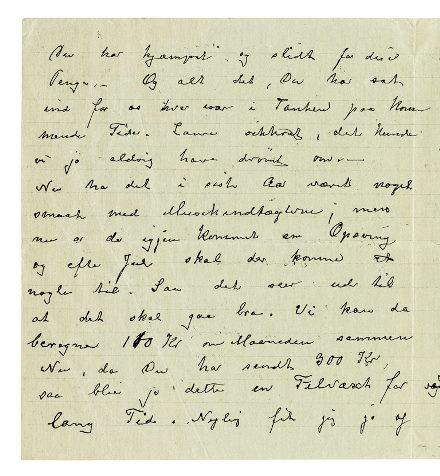 Du har kjæmpet og slidt for dine
Penge. – Og alt det, Du har sat
ind for os hver især i Tanken paa Kom-
mende Tider. Laura, det kunde
vi jo aldrig have drømt om. –
Nu har det i siste Aar været noget
smaat med Musikindtægterne; men
nu er der igjen kommet en Opsving
og efter Jul skal der komme
nogle til. Saa det ser ud til
at det skal gaa bra. Vi kan da
beregne 110 Kr om Maaneden sammen
Nu, da Du har sendt 300 Kr,
saa blir jo dette en Tilvækst for
lang Tid. Nylig fik jeg jo og